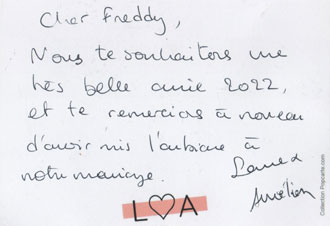 Cher Freddy,
Nous te souhaitons une
très belle année 2022,
et te remercions à nouveau
d'avoir mis l'ambiance à
notre mariage.
Laure &
Aurélien
L♡A
Collection Popcarte.com